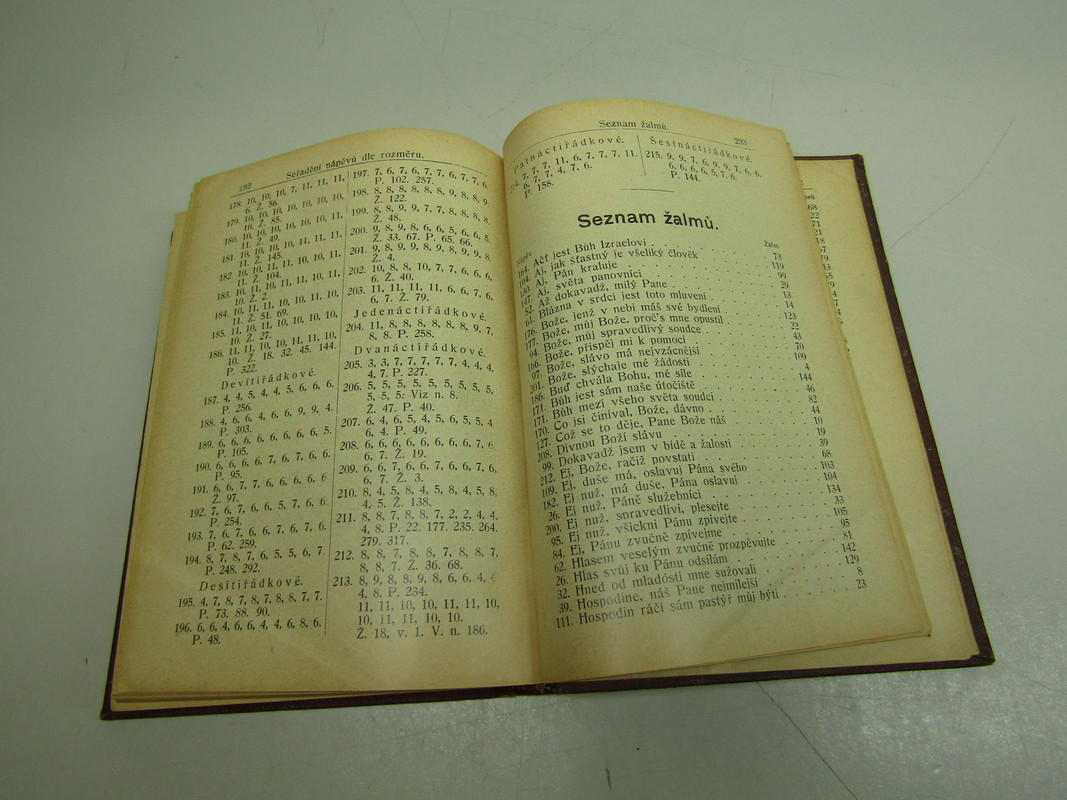 Seřadění nápěvů dle rozměru.
178. 10, 10, 10, 7, 11, 11, 11,
6. Ž. 56.
179. 10, 10, 10, 10, 10, 10,
10. Ž. 85.
180. 10, 10, 10, 10, 10, 11,
11. Ž. 49.
181. 10, 10, 10, 11, 11, 11,
11. Ž. 145.
182. 10, 10, 11, 10, 10, 10,
11. Ž. 104.
183. 10, 11, 10, 11, 10, 11,
10. Ž. 2.
184. 10, 11, 10, 10, 11, 10,
11. Ž. 51. 69.
185. 11, 10, 10, 10, 10, 10,
10. Ž. 27.
186. 11, 11, 10, 10, 11, 11, 10,
10. Ž. 18. 32. 45. 144.
P. 322.
Devítiřádkové.
187. 4, 4, 5, 4, 4, 5, 6, 6, 6.
P. 256.
188. 4, 6, 6, 4, 6, 6, 9, 9, 4.
P. 303.
189. 6, 6, 6, 6, 6, 6, 6, 6, 5.
P. 105.
190. 6, 6, 6, 6, 7, 6, 7, 6, 6.
P. 95.
191. 6, 6, 7, 7, 6, 6, 6, 6, 6
Ž. 97.
192. 7, 6, 7, 6, 6, 5, 7, 6, 6.
P. 254.
193. 7, 6, 7, 6, 6, 7, 6, 7, 6.
P. 62. 259.
194. 8, 7, 8, 7, 6, 5, 5, 6, 7.
P. 248. 292.
Desítiřádkové.
195. 4, 7, 8, 7, 8, 7, 8, 8, 7, 7.
P. 73. 88. 90.
196. 6, 6, 4, 6, 6, 4, 4, 6, 8, 6.
P. 48.
197. 7, 6, 7, 6, 7, 7, 6, 7, 7, 6.
P. 102. 257.
198. 8, 8, 8, 8, 8, 8, 9, 8, 8, 9.
Ž. 122.
199. 8, 8, 9, 9, 7, 7, 8, 8, 8, 8.
Ž. 48.
200. 9, 8, 9, 8, 6, 6, 5, 6, 6, 5.
Ž. 33. 67. P. 65. 66.
201. 9, 8, 9, 9, 8, 9, 8, 9, 9, 8.
Ž. 4.
202. 10, 8, 8, 10, 7, 7, 6, 6, 6,
6. Ž. 40.
203. 11, 11, 11, 11, 6, 6, 7, 6,
6, 7. Ž. 79.
Jedenáctiřádkové.
204. 11, 8, 8, 8, 8, 8, 8, 9, 7,
8, 8. P. 258.
Dvanáctiřádkové.
205. 3, 3, 7, 7, 7, 7, 7, 4, 4, 4,
4, 7. P. 227.
206. 5, 5, 5, 5, 5, 5, 5, 5, 5,
5, 5, 5: Viz n. 8.
Ž. 47. P. 40.
207. 6, 4, 6, 5, 4, 5, 6, 5, 5, 4
6, 4. P. 49.
208. 6, 6, 6, 6, 6, 6, 6, 6, 7, 6,
6, 7. Ž. 19.
209. 6, 6, 7, 6, 6, 7, 6, 6, 7, 6,
6, 7. Ž. 3.
210. 8, 4, 5, 8, 4, 5, 8, 4, 5, 8,
4, 5. Ž. 138.
211. 8, 8, 7, 8, 8, 7, 2, 2, 4, 4,
4, 8. P. 22. 177. 235. 264.
279. 317.
212. 8, 8, 7, 8, 8, 7, 8, 8, 7,
8, 8, 7. Ž. 36. 68.
213. 8, 9, 8, 8, 9, 8, 6, 6, 4,
4, 8. P. 234.
11, 11, 10, 10, 11, 11, 10,
10, 11, 11, 10, 10.
Ž. 18, v. 1. V. n. 186.
Seznam žalmů.
293
Patnáctiřádkové.
7, 7, 7, 11, 6, 7, 7, 7, 11.
6, 7, 7, 4, 7, 6.
P. 158.
Šestnáctiřádkové.
215. 9, 9, 7, 6, 9, 9, 7, 6, 6.
6, 6, 6, 6, 5, 7, 6.
P. 144.
Seznam žalmů.
Nápěv Žalm
164. Ač jest Bůh Izraelovi 73
104. Aj, jak šťastný je všeliký člověk 119
130. Aj, Pán kraluje 99
147. Aj, světa panovníci 29
52. Až dokavadž, milý Pane 13
61. Blázna v srdci jest toto mluvení 14
176. Bože, jenž v nebi máš své bydlení 123
177. Bože, můj Bože, proč's mne opustil 22
94. Bože, můj spravedlivý soudce 43
166. Bože, přispěj mi k pomoci 70
97. Bože, slávo má nejvzácnější 109
201. Bože, slýchaje mé žádosti 4
186. Buď chvála Bohu, mé síle 144
171. Bůh jest sám naše útočiště 46
171. Bůh mezi všeho světa soudci 82
170. Co jsi činíval, Bože, dávno 44
127. Což se to děje, Pane Bože náš 10
208. Divnou Boží slávu 19
99. Dokavadž jsem v bídě a žalosti 39
212. Ej, Bože, račiž povstati 68
109. Ej, duše má, oslavuj Pána svého 103
182. Ej nuž, má duše, Pána oslavuj 104
26. Ej nuž, Páně služebníci 134
200. Ej nuž, spravedliví, plesejte 33
95. Ej nuž, všickni Pánu zpívejte 105
84. Ej, Pánu zvučně zpívejme 95
62. Hlasem veselým zvučně prozpěvujte 81
26. Hlas svůj ku Pánu odsílám 142
32. Hned od mladosti mne sužovali 129
39. Hospodine, náš Pane nejmilejší 8
111. Hospodin ráčí sám pastýř můj býti 23